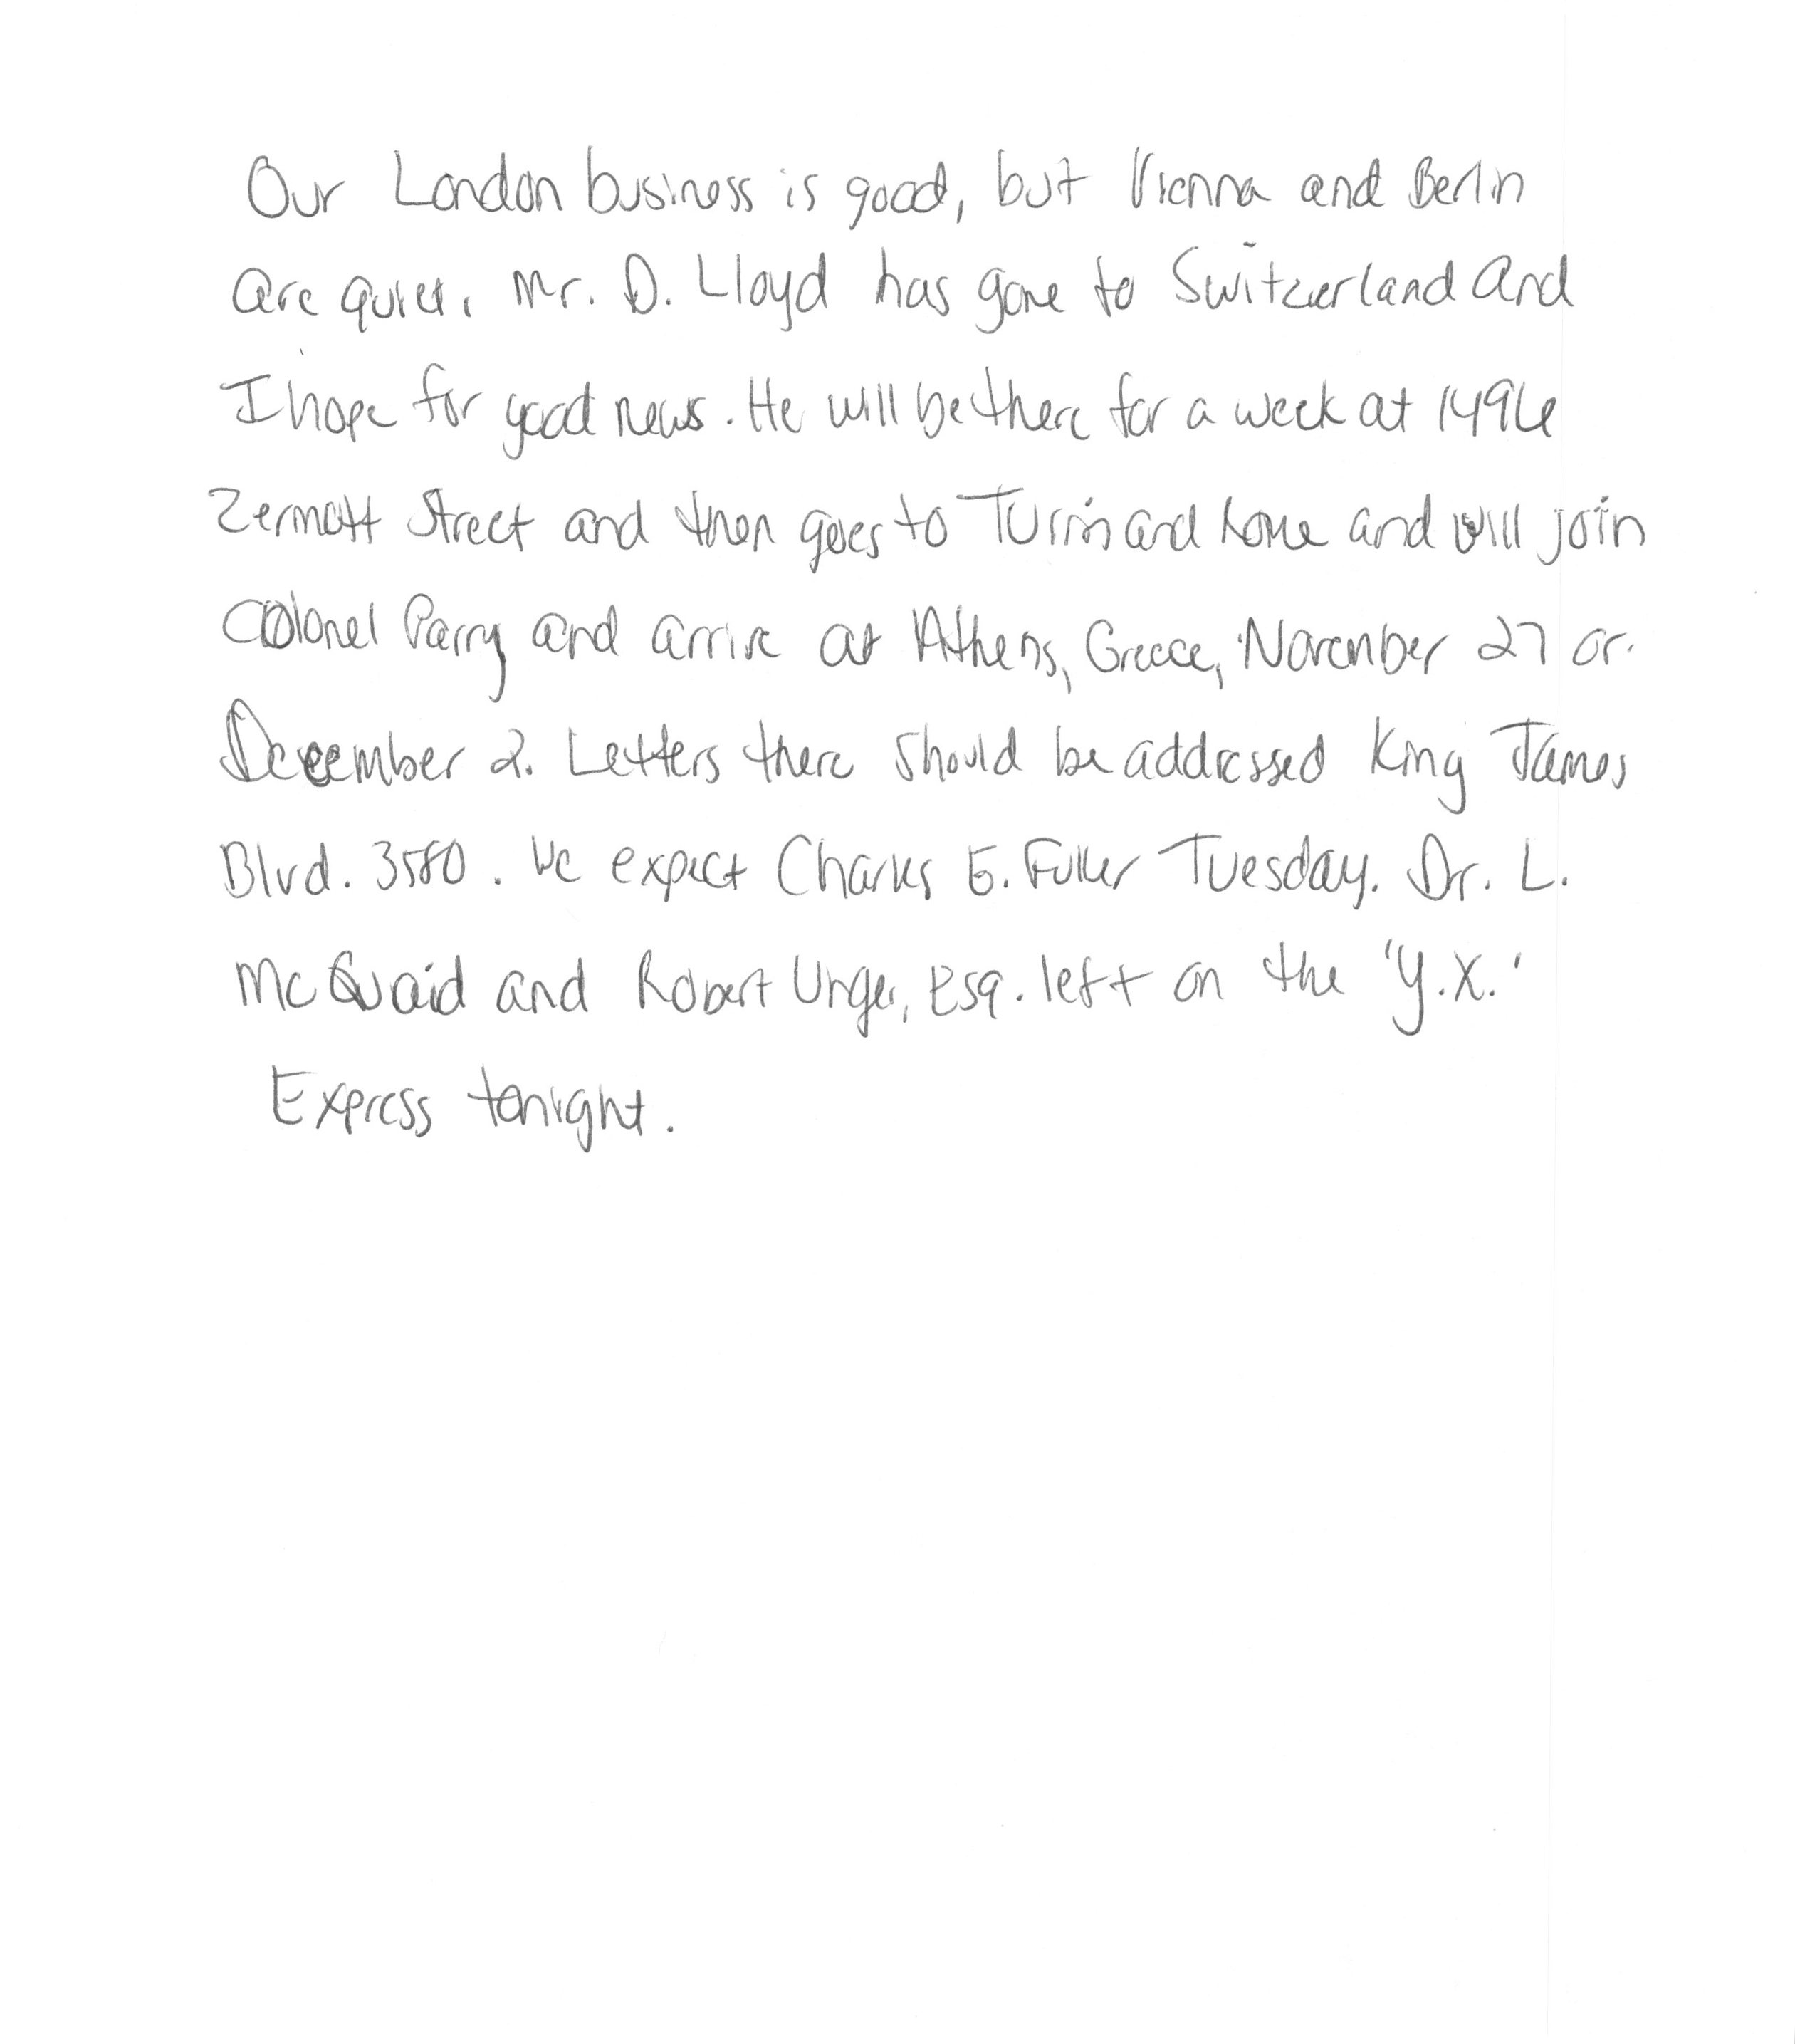 Our London business is good, but Vienna and Berlin
are quiet. Mr. D. Lloyd has gone to Switzerland and
I hope for good news. He will be there for a week at 1496
Zermott Street and then goes to Turin and Rome and will join
Colonel Parry and arrive at Athens, Greece, November 27 or
December 2. Letters there should be addressed King James
Blvd. 3580. We expect Charles E. Fuller Tuesday. Dr. L.
McQuaid and Robert Unger, Esq. left on the 'Y.X.'
Express tonight.